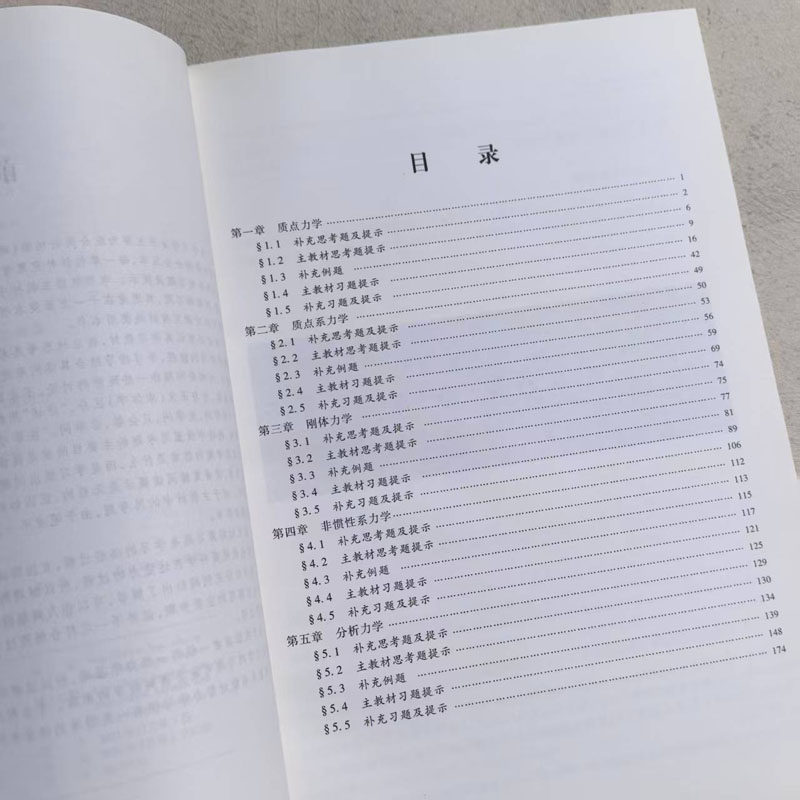 目 录
第一章 质点力学 …… 1
§1.1 补充思考题及提示 …… 2
§1.2 主教材思考题提示 …… 6
§1.3 补充例题 …… 9
§1.4 主教材习题提示 …… 16
§1.5 补充习题及提示 …… 42
第二章 质点系力学 …… 49
§2.1 补充思考题及提示 …… 50
§2.2 主教材思考题提示 …… 53
§2.3 补充例题 …… 56
§2.4 主教材习题提示 …… 59
§2.5 补充习题及提示 …… 69
第三章 刚体力学 …… 74
§3.1 补充思考题及提示 …… 75
§3.2 主教材思考题提示 …… 77
§3.3 补充例题 …… 81
§3.4 主教材习题提示 …… 89
§3.5 补充习题及提示 …… 106
第四章 非惯性系力学 …… 112
§4.1 补充思考题及提示 …… 113
§4.2 主教材思考题提示 …… 115
§4.3 补充例题 …… 117
§4.4 主教材习题提示 …… 121
§4.5 补充习题及提示 …… 125
第五章 分析力学 …… 129
§5.1 补充思考题及提示 …… 130
§5.2 主教材思考题提示 …… 134
§5.3 补充例题 …… 139
§5.4 主教材习题提示 …… 148
§5.5 补充习题及提示 …… 174